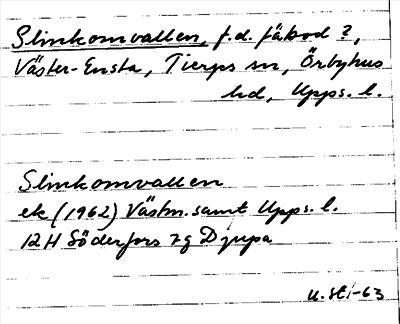 Slinkomvallen, f.d. fäbod?,
Väster-Ensta, Tierps sn, Örbyhus
hd, Upps. l.
Slinkomvallen
ek (1962) Västm. samt Upps. l.
12H Söderfors 7g Djupa
U. St. -63